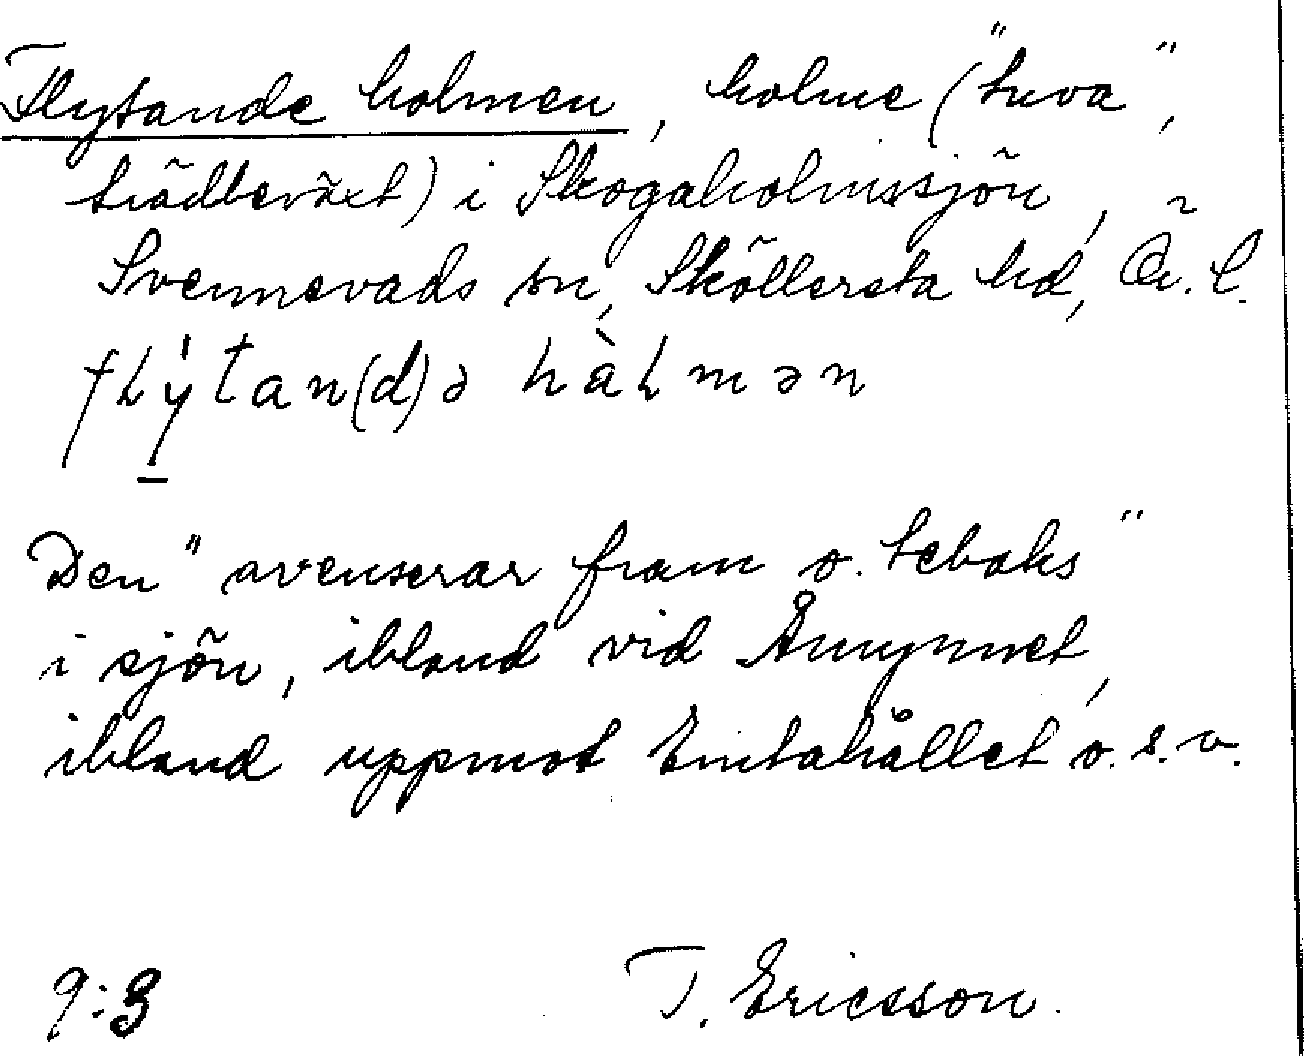 Flytande holmen, holme ("tuva",
trädbeväxt) i Skogaholmssjön,
Svennevads sn, Sköllersta hd, Ö. L.
flẏtan(d)ə hàlmən
Den "avenserar fram o. tebaks"
i sjön, ibland vid Åmynnet,
ibland uppmot Emtahållet o.s.v.
9:3 T. Ericsson.